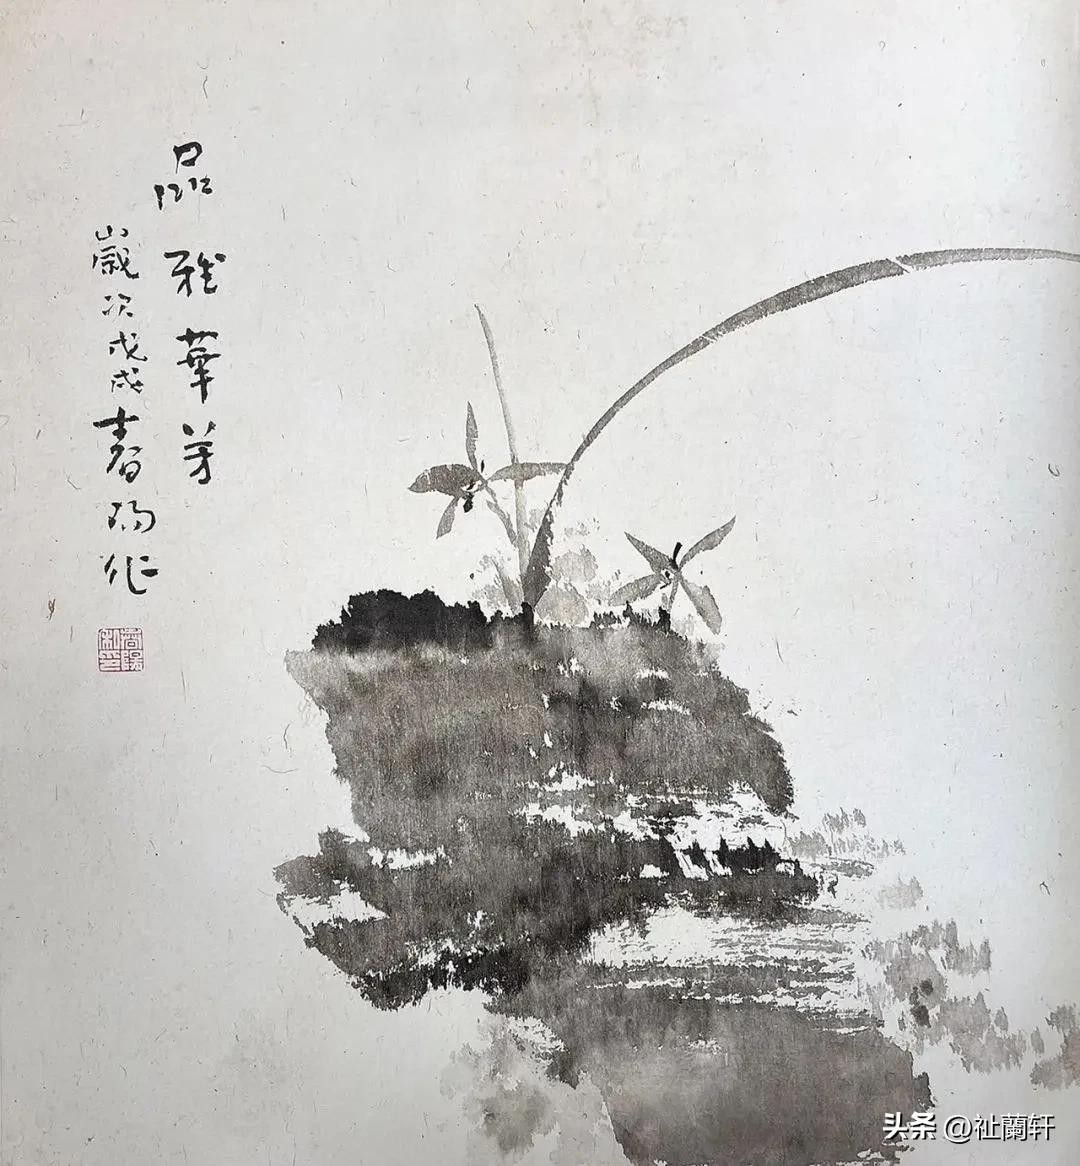 品雅華芳
歲次戊戌春陽作
头条 @祉蘭轩